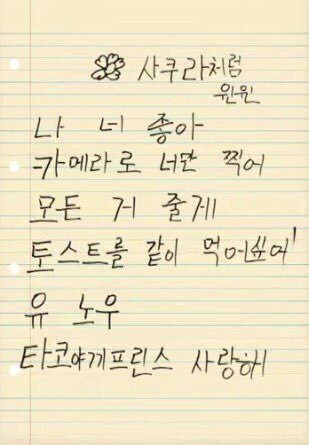 사쿠라처럼
윈윈
나 너 좋아
카메라로 너만 찍어
모든 거 줄게
토스트를 같이 먹어싶어!
유 노우
타코야끼프린스 사랑해